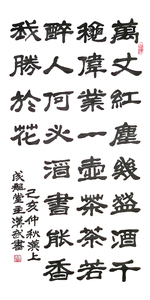 萬丈紅塵幾盞酒千
穐偉業一壺茶茶若
醉人何必酒書能香
我勝於花
己亥仲秋漢上
堂主漢武書